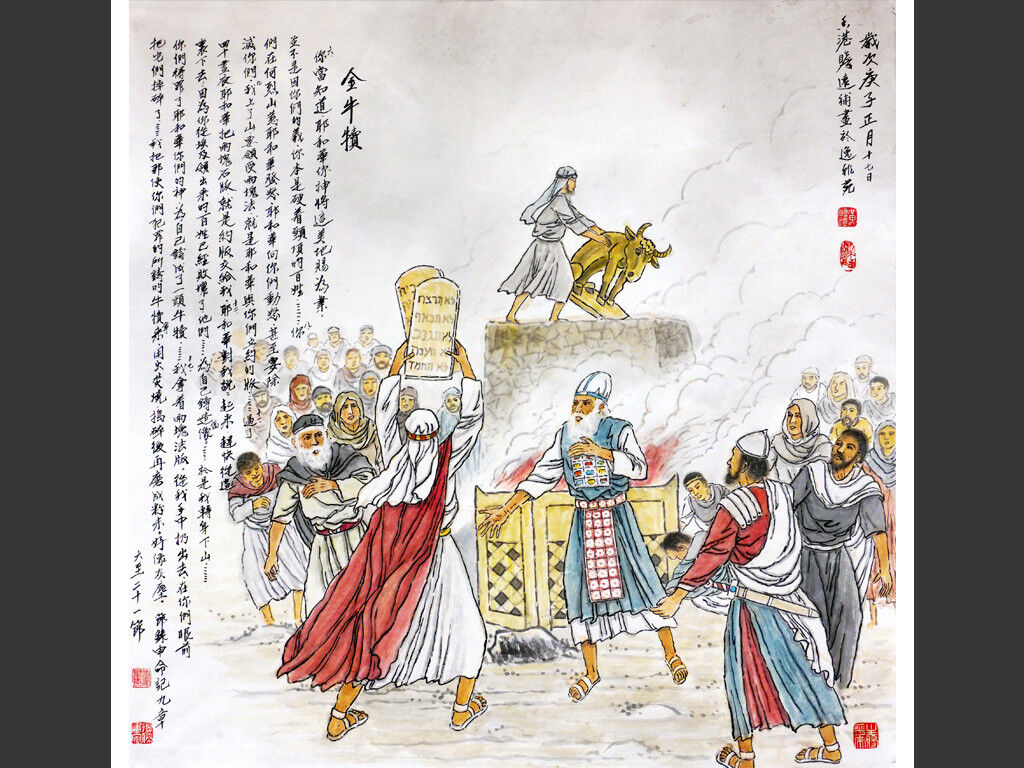 歲次庚子正月十七日
香港 遠補畫於逸雅苑
金牛犢
六 你當知道耶和華你神將這美地賜為業
並不是因你們的義你本是硬着頸項的百姓……你
們在何烈山惹耶和華發怒耶和華向你們動怒甚至要除
滅你們我上了山要領受兩塊法就是耶和華與你們立約的版……過了
四十晝夜耶和華把兩塊石版就是約版交給我耶和華對我說起來趕快從這
裏下去因為你從埃及領出來的百姓已經敗壞了他們……為自己鑄造像……於是我轉身下山……
你們得罪了耶和華你們的神為自己鑄成了一頭牛犢……我拿着兩塊法版從我手中扔出去在你們眼前
把它們摔碎了……我把那使你們犯罪的所鑄的牛犢來用火焚燒搗碎後再磨成粉末好像灰塵 節錄申命記九章
六至二十一節
לא תרצח
לא תנאף
לא תגנב
לא תענה
לא תחמד